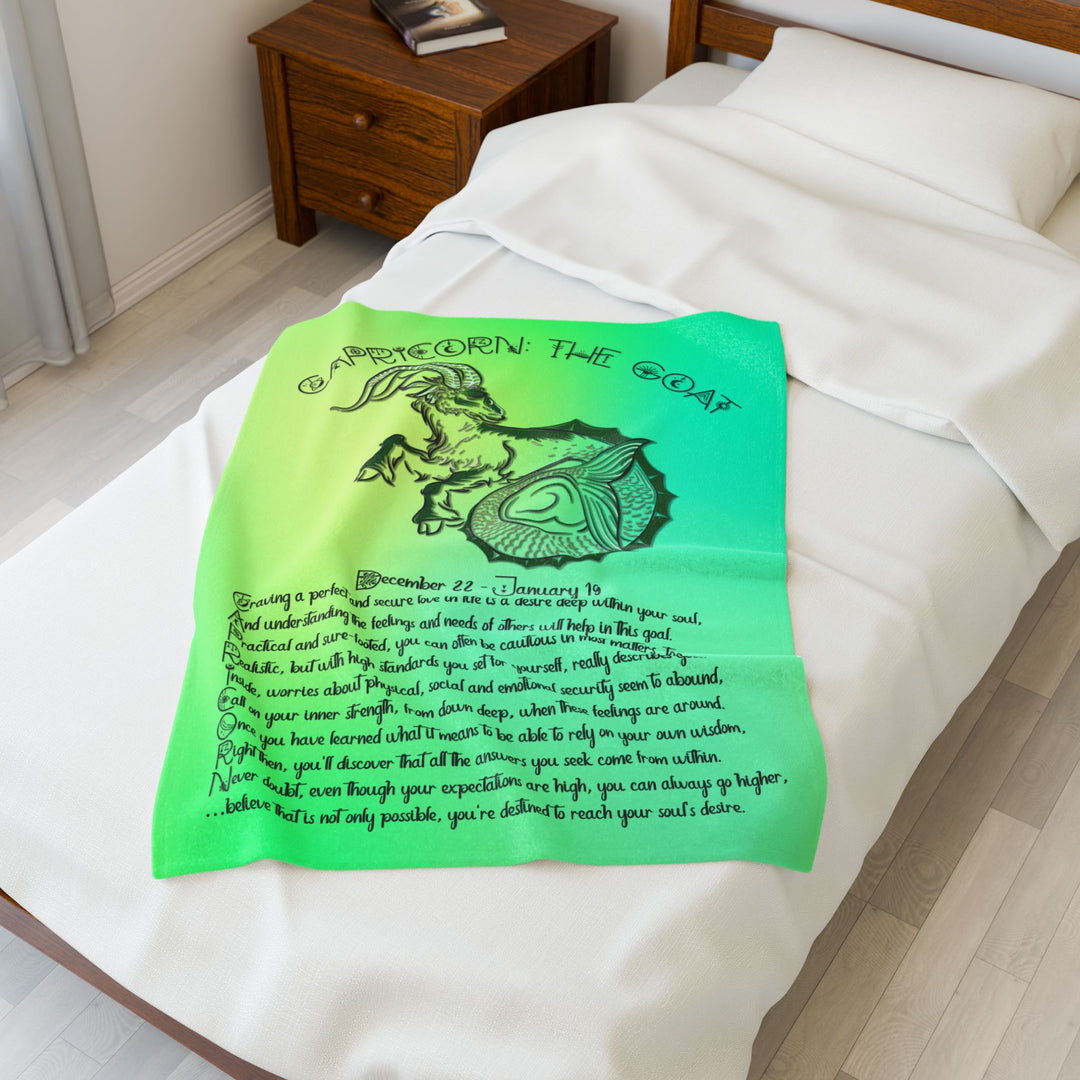 CAPRICORN: THE GOAT
December 22 - January 19
Craving a perfect and secure love in life is a desire deep within your soul,
And understanding the feelings and needs of others will help in this goal.
Practical and sure-footed, you can often be cautious in most matters,
Realistic, but with high standards you set for yourself, really
Inside, worries about physical, social and emotional security seem to abound,
Call on your inner strength, from down deep, when these feelings are around.
Once you have learned what it means to be able to rely on your own wisdom,
Right then, you'll discover that all the answers you seek come from within.
Never doubt, even though your expectations are high, you can always go higher,
...believe that is not only possible, you're destined to reach your soul's desire.